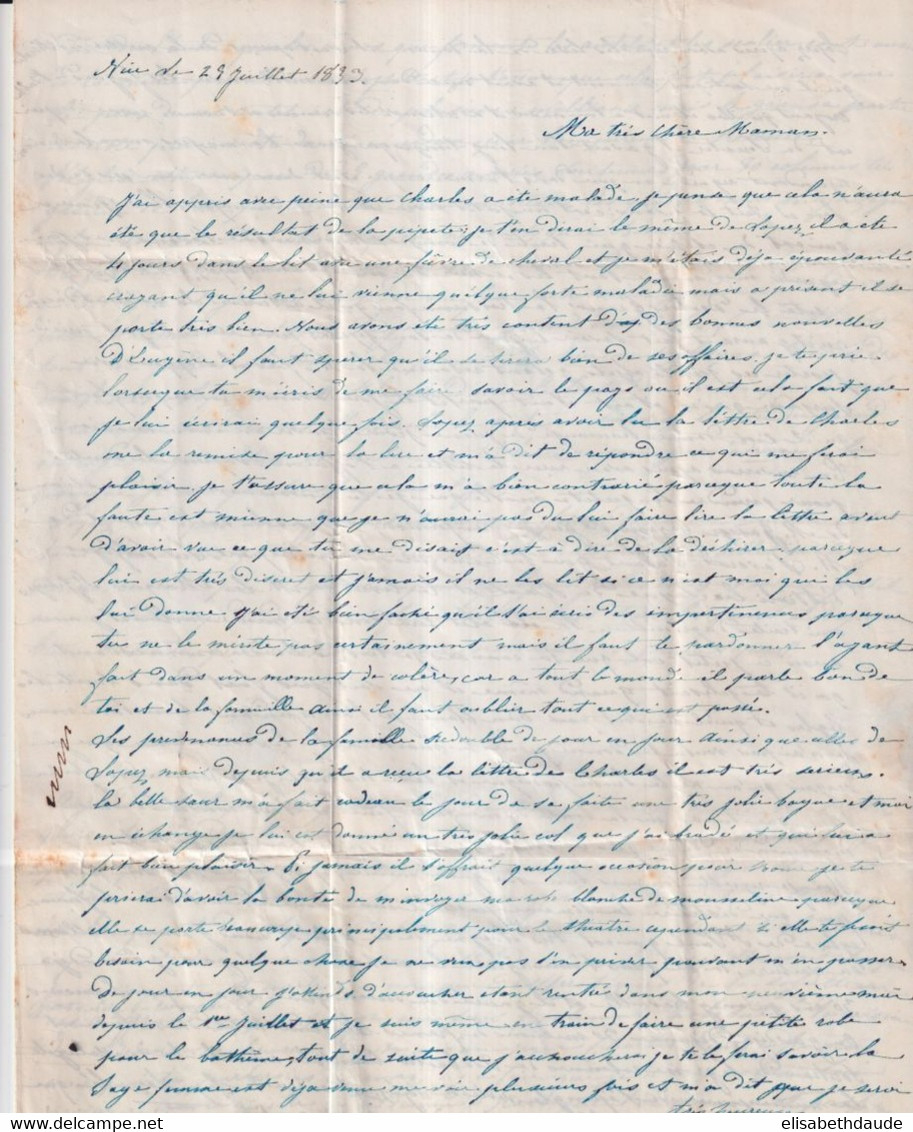 Nice le 29 Juillet 1833.
Ma très chère Maman.
J'ai appris avec peine que Charles a été malade, je pense que cela n'aura
été que le résultat de la ; je t'en dirai le même de Lopez, il a été
4 jours dans le lit avec une fièvre de cheval et je m'étais déja épouvanté
croyant qu'il ne lui vienne quelque forte maladie mais a présent il se
porte très bien. Nous avons été très content des bonnes nouvelles
D'Eugène il faut sperer qu'il se tirera bien de ses affaires. je te prie
lorsque tu m'écris de me faire savoir le pays ou il est cela fait que
je lui écrirai quelque fois. Lopez apres avoir lu la lettre de Charles
me la remise pour la lire et m'a dit de répondre ce qui me ferai
plaisir, je t'assure que cela m'a bien contrarié parceque toute la
faute est mienne que je n'aurai pas du lui faire lire la lettre avant
d'avoir vue ce que tu me disait c'est à dire de la déchirer parceque
lui est très discret et jamais il ne les lit si ce n'est moi que les
lui donne. J'ai été bien faché qu'il t'ai écris des impertinences parceque
tu ne le mérite pas certainement mais il faut le pardonner l'ayant
fait dans un moment de colère, car a tout le monde il parle bien de
toi et de la famille ainsi il faut oublier tout ce qui est passé.
Les prevenances de la famille redouble de jour en jour ainsi que celles de
Lopez mais depuis qu'il a reçu la lettre de Charles il est très serieux.
la belle sœur m'a fait cadeau le jour de sa faite une très jolie bague et moi
en échange je lui est donné un très jolie col que j'ai brodé et qui lui a
fait bien plaisir. Si jamais il s'offrait quelque occasion pour je te
prierai d'avoir la bonté de m'envoyer ma robe blanche de mousseline parceque
elle se porte beaucoup principalement pour le théatre cependant si elle te fesais
besoin pour quelque chose je ne veux pas t'en priver pouvant m'en passer.
De jour en jour j'attends d'accoucher etant rentrée dans mon neuvième mois
depuis le 1er Juillet et je suis même en train de faire une petite robe
pour le bathême, tout de suite que j'accoucherai je te le ferai savoir la
sage femme est déja venu me voir plusieurs fois et m'a dit que je serai
très heureuse
elisabethdaude